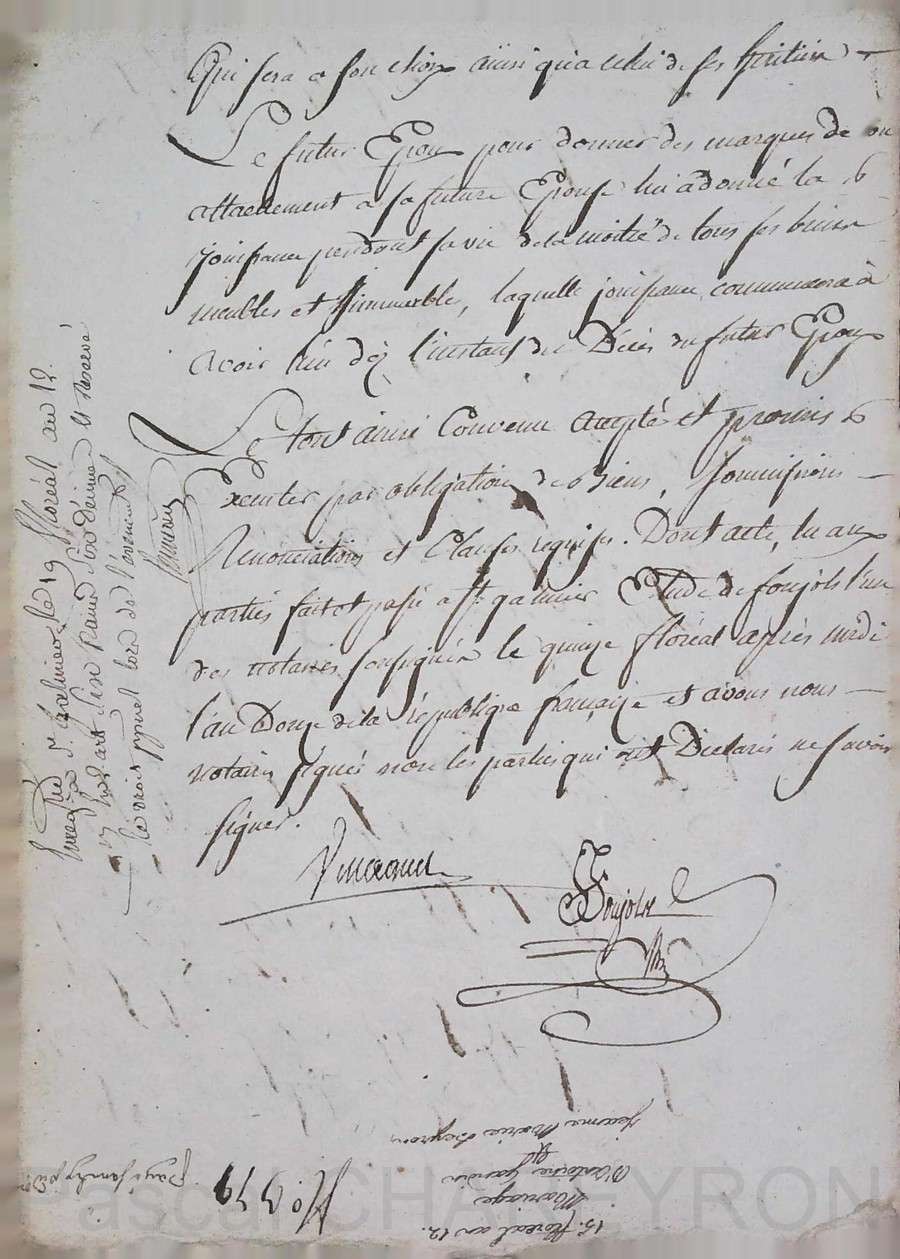 qui sera a son choix ainsi qu'a celui de ses héritiers
Le futur Epoux pour donner des marques de son
attachement a sa future Epouse lui a donné la
jouissance pendant sa vie de la moitié de tous ses biens
meubles et immeubles, laquelle jouissance commencera à
avoir lieu dez l'instant du Décés du futur Epoux
Le tout ainsi Convenu accepté et promis
Executer par obligation de biens, soumissions
Renonciations et Clauses requises. Dont acte, lu aux
parties fait et passé a St. galmier Etude de foujols l'un
des notaires soussignés le quinze floréal après midi
l'an Douze de la république française et avons nous
notaires signés non les parties qui ont Déclarés ne savoir
signer.
Foujols
Enregistré a St. galmier le 19 floréal an 12.
le droit proportionnel lors de l'événement
15. floréal an 12.
Mariage
Antoine
et
jeanne Marie
No. 379